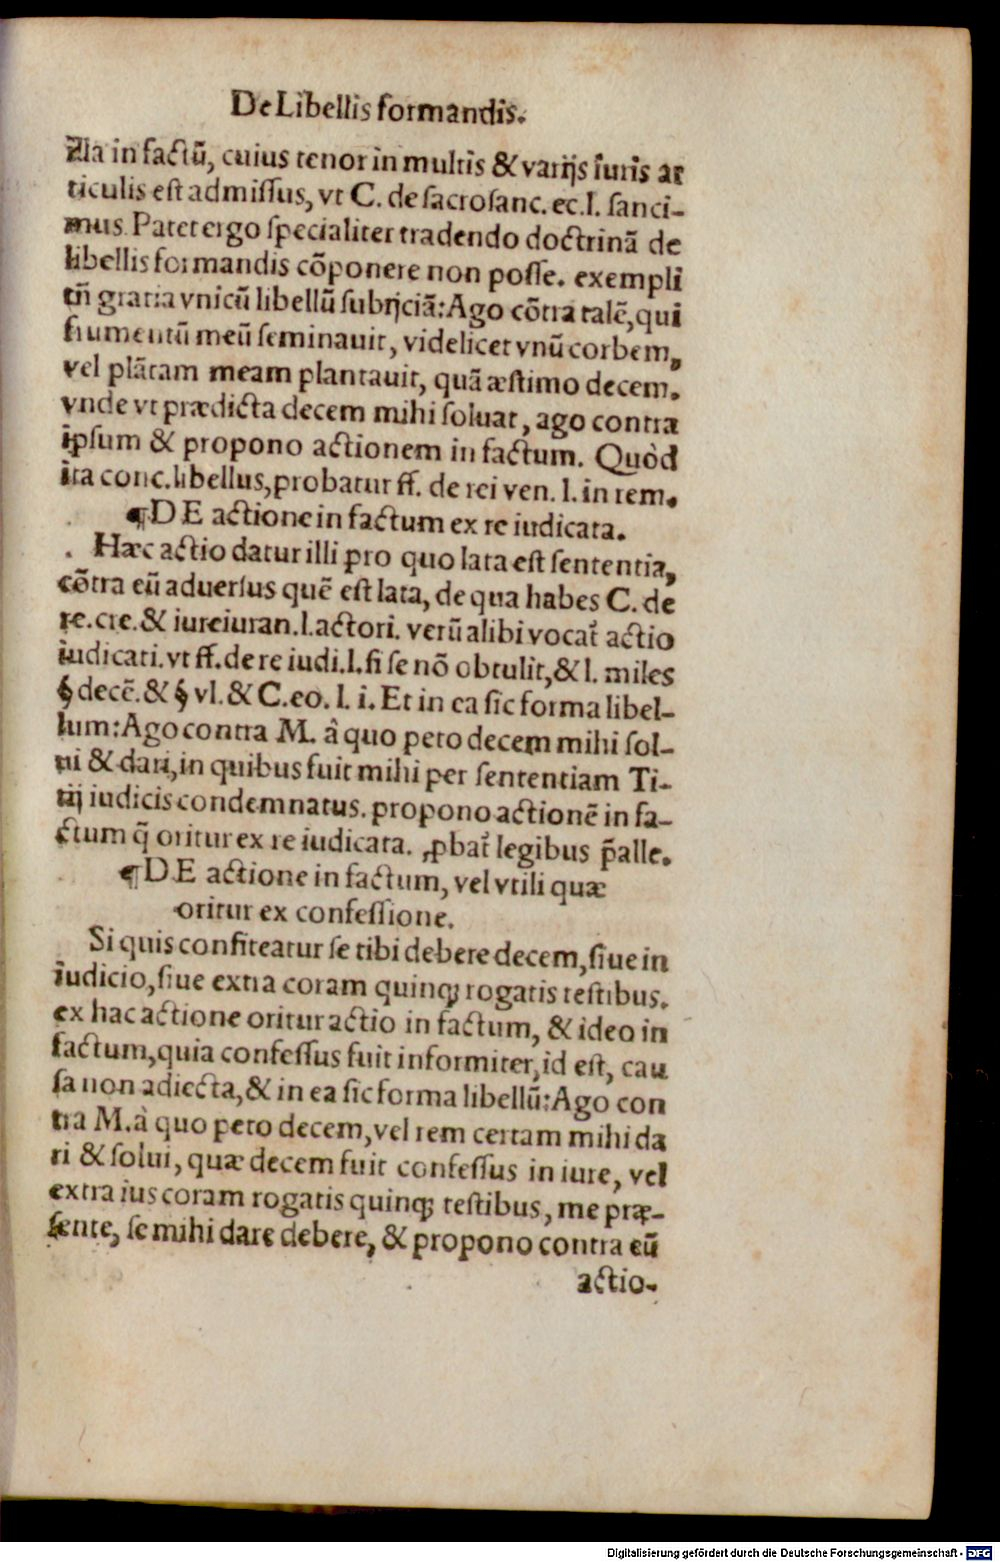 De Libellis formandis.
Alia in factũ, cuius tenor in multis & varijs iuris ar
ticulis est admissus, vt C. de sacrosanc. ec. l. sanci-
mus. Patet ergo specialiter tradendo doctrinã de
libellis formandis cõponere non posse. exempli
tñ gratia vnicũ libellũ subijciã: Ago cõtra talẽ, qui
frumentũ meũ seminauit, videlicet vnũ corbem,
vel plãtam meam plantauit, quã æstimo decem.
vnde vt prædicta decem mihi soluat, ago contra
ipsum & propono actionem in factum. Quòd
ita conc. libellus, probatur ff. de rei ven. l. in rem.
¶DE actione in factum ex re iudicata.
Hæc actio datur illi pro quo lata est sententia,
cõtra eũ aduersus quẽ est lata, de qua habes C. de
re. cre. & iureiuran. l. actori. verũ alibi vocat̃ actio
iudicati. vt ff. de re iudi. l. si se nõ obtulit, & l. miles
§ decẽ. & § vl. & C. eo. l. i. Et in ea sic forma libel-
lum: Ago contra M. â quo peto decem mihi sol-
ui & dari, in quibus fuit mihi per sententiam Ti-
tij iudicis condemnatus. propono actionẽ in fa-
ctum q̃ oritur ex re iudicata. ꝓbat̃ legibus p̃alle.
¶DE actione in factum, vel vtili quæ
oritur ex confessione.
Si quis confiteatur se tibi debere decem, siue in
iudicio, siue extra coram quinqꝫ rogatis testibus.
ex hac actione oritur actio in factum, & ideo in
factum, quia confessus fuit informiter, id est, cau
sa non adiecta, & in ea sic forma libellũ: Ago con
tra M. à quo peto decem, vel rem certam mihi da
ri & solui, quæ decem fuit confessus in iure, vel
extra ius coram rogatis quinqꝫ testibus, me præ-
sente, se mihi dare debere, & propono contra eũ
actio-
Digitalisierung gefördert durch die Deutsche Forschungsgemeinschaft - DFG